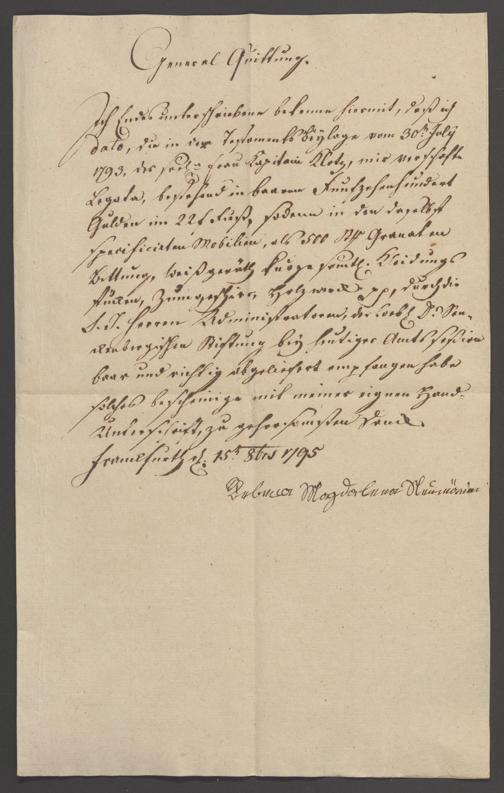 General Quittung.
Ich Endes unterschriebene bekenne hiermit, daß ich
dato, die in der Testaments Beylage vom 30t July
1793. der seel. Frau Capitain Klotz, mir vermachte
Legata, bestehend in baaren Funfzehenhundert
Gulden im 22f. Fuß, sodann in den daselbst
specificirten Mobilien, als 500 Granaten
Bettung, Weißgeräth kurze samtl. Kleidungs
stücken, Zinngeschirr, Holzwerck pp, durch die
S. T. Herren Administratoren, der Löbl. Dr. Sen-
ckenbergischen Stiftung bey heutiger Amts Session
baar und richtig abgeliefert empfangen habe
solches bescheinige mit meiner eignen Hand-
Unterschrift, zu gehorsamsten Danck
Franckfurth d. 15t 8brs 1795
Rebecca Magdalena